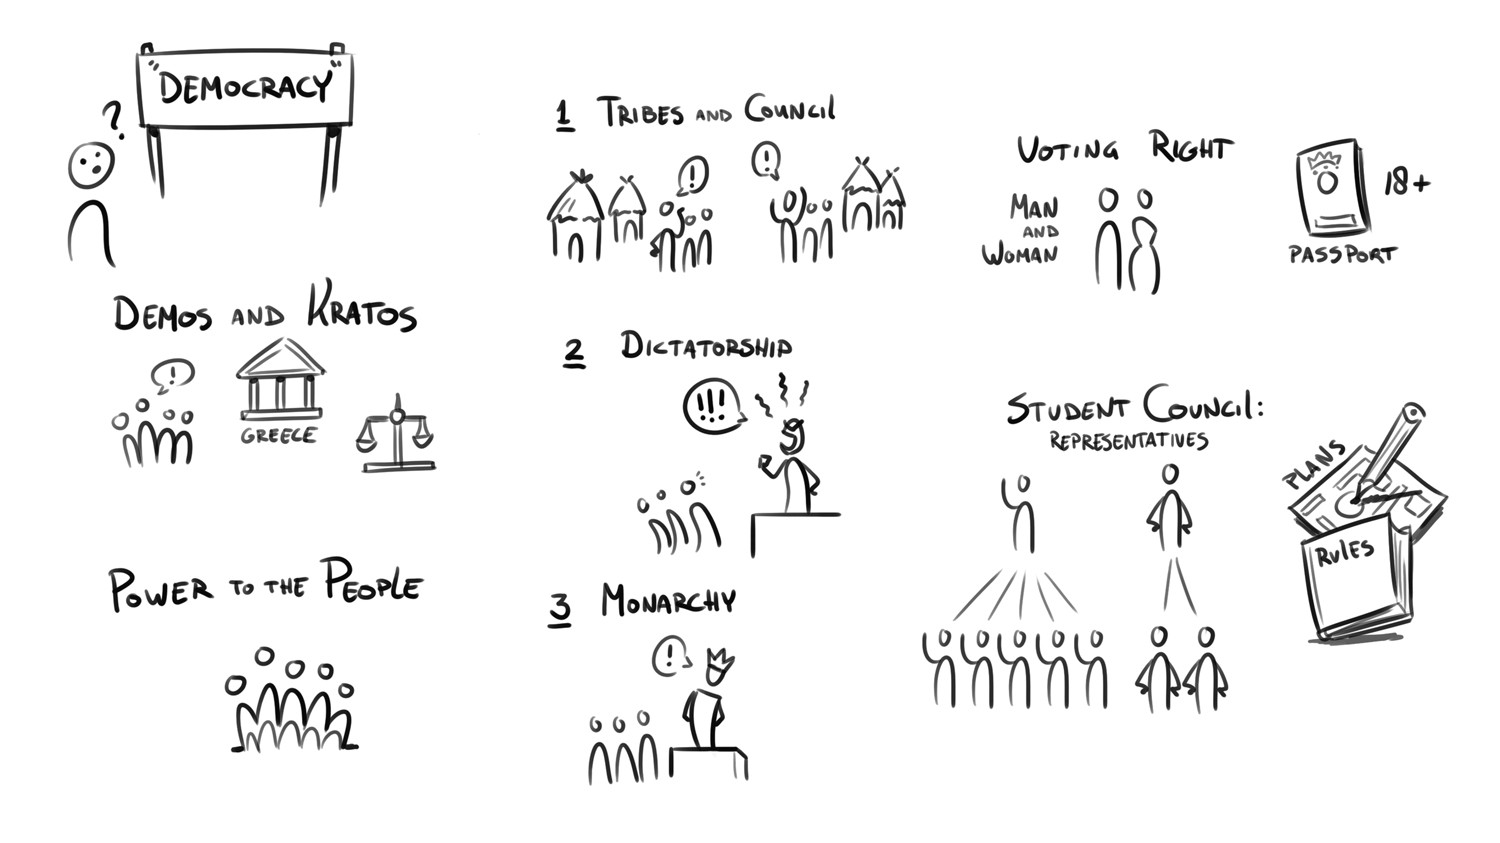 "DEMOCRACY"
?
DEMOS AND KRATOS
!
GREECE
POWER TO THE PEOPLE
1 TRIBES AND COUNCIL
!
!
2 DICTATORSHIP
!!!
3 MONARCHY
!
VOTING RIGHT
MAN
AND
WOMAN
18+
PASSPORT
STUDENT COUNCIL:
REPRESENTATIVES
PLANS
RULES